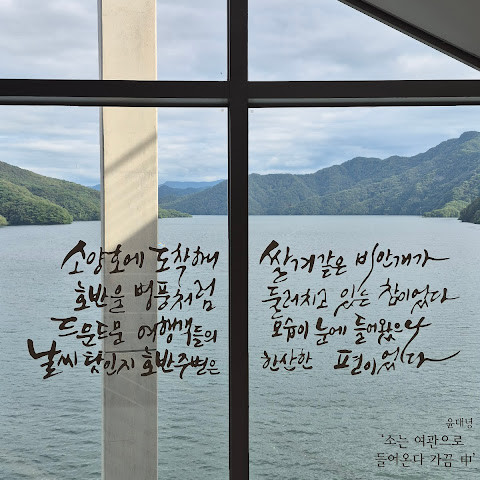 소양호에 도착하니 쌀겨같은 비안개가
호반을 병풍처럼 둘러치고 있는 참이었다
드문드문 여행객들의 모습이 눈에 들어왔으나
날씨 탓인지 호반주변은 한산한 편이었다
윤대녕
'소는 여관으로
들어온다 가끔 中'